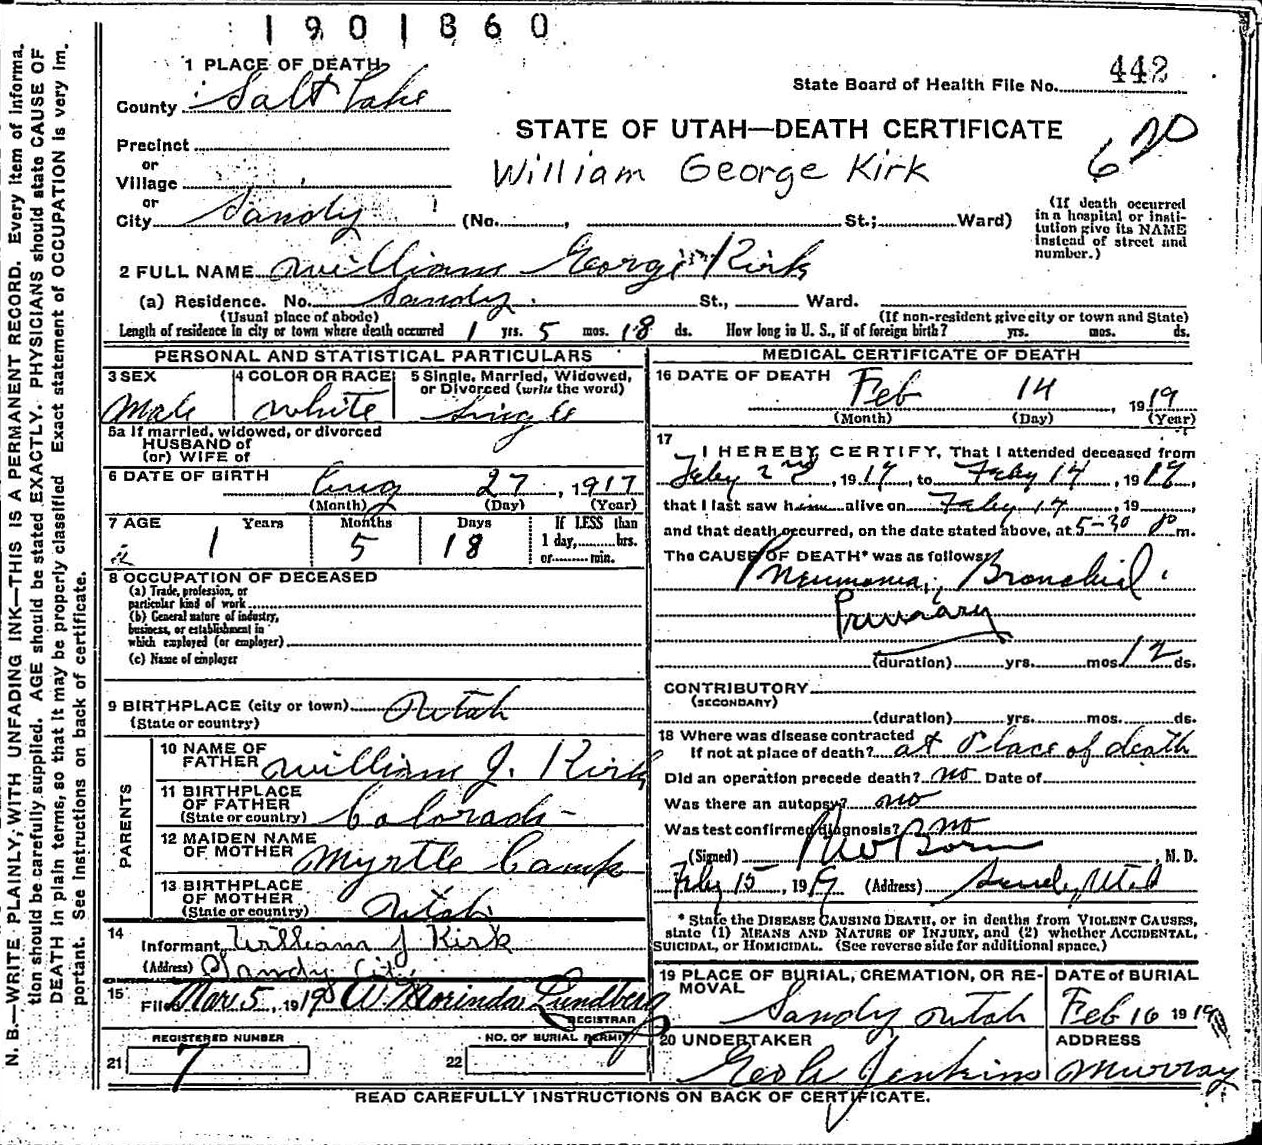 1901860
1 PLACE OF DEATH
County Salt Lake
State Board of Health File No. 442
STATE OF UTAH—DEATH CERTIFICATE
620
Precinct
or
Village
William George Kirk
or
City Sandy (No. , St.; Ward)
(If death occurred
in a hospital or insti-
tution give its NAME
instead of street and
number.)
2 FULL NAME William George Kirk
(a) Residence. No. Sandy. St., Ward.
(Usual place of abode) (If non-resident give city or town and State)
Length of residence in city or town where death occurred 1 yrs. 5 mos. 18 ds. How long in U. S., if of foreign birth? yrs. mos. ds.
PERSONAL AND STATISTICAL PARTICULARS
3 SEX 4 COLOR OR RACE 5 Single, Married, Widowed,
or Divorced (write the word)
Male White Single
5a If married, widowed, or divorced
HUSBAND of
(or) WIFE of
6 DATE OF BIRTH
Aug 27, 1917
(Month) (Day) (Year)
7 AGE Years Months Days If LESS than
1 5 18 1 day, hrs.
or min.
8 OCCUPATION OF DECEASED
(a) Trade, profession, or
particular kind of work
(b) General nature of industry,
business, or establishment in
which employed (or employer)
(c) Name of employer
9 BIRTHPLACE (city or town) Utah
(State or country)
PARENTS
10 NAME OF
FATHER William J. Kirk
11 BIRTHPLACE
OF FATHER
(State or country) Colorado
12 MAIDEN NAME
OF MOTHER Myrtle Camp
13 BIRTHPLACE
OF MOTHER
(State or country) Utah
14
Informant William J Kirk
(Address) Sandy City
15
Filed Mar. 5, 1919 W. Morinda Lundberg
REGISTRAR
REGISTERED NUMBER NO. OF BURIAL PERMIT
21 7 22
MEDICAL CERTIFICATE OF DEATH
16 DATE OF DEATH
Feb 14, 1919
(Month) (Day) (Year)
17
I HEREBY CERTIFY, That I attended deceased from
Feby 2nd, 1919, to Feby 14, 1919,
that I last saw him alive on Feby 14, 19 ,
and that death occurred, on the date stated above, at 5-30 P m.
The CAUSE OF DEATH* was as follows:
Pneumonia, Bronchial.
Primary
(duration) yrs. mos. 12 ds.
CONTRIBUTORY
(SECONDARY)
(duration) yrs. mos. ds.
18 Where was disease contracted
If not at place of death? at Place of death
Did an operation precede death? no Date of
Was there an autopsy? no
Was test confirmed diagnosis? no
(Signed) , M. D.
Feby 15, 1919 (Address) Sandy, Utah
* State the DISEASE CAUSING DEATH, or in deaths from VIOLENT CAUSES,
state (1) MEANS AND NATURE OF INJURY, and (2) whether ACCIDENTAL,
SUICIDAL, or HOMICIDAL. (See reverse side for additional space.)
19 PLACE OF BURIAL, CREMATION, OR RE-
MOVAL
Sandy Utah
DATE OF BURIAL
Feb 16 1919
20 UNDERTAKER
Jenkins
ADDRESS
Murray
READ CAREFULLY INSTRUCTIONS ON BACK OF CERTIFICATE.
N. B.—WRITE PLAINLY, WITH UNFADING INK—THIS IS A PERMANENT RECORD. Every item of informa-
tion should be carefully supplied. AGE should be stated EXACTLY. PHYSICIANS should state CAUSE OF
DEATH in plain terms, so that it may be properly classified Exact statement of OCCUPATION is very im-
portant. See Instructions on back of certificate.